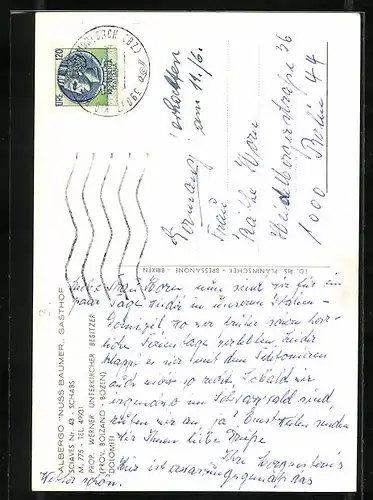 ALBERGO "NUSS BAUMER" GASTHOF
SCIAVES Nr. 43 - SCHABS
M. 775 - Tel. 41931
PROP. WERNER UNTERKIRCHER BESITZER
(PROV. BOLZANO - BOZEN)
DOLOMITI
FOT. RIS. PLANINSCHEK - BRESSANONE - BRIXEN
LIRE 120
(BZ)
erhalten
am 11./6.
Germany
Frau
Käthe Horn
Heidelbergerstraße 36
1000 Berlin 44
Liebe Frau Horn nun sind wir für ein
paar Tage wieder in unserem Italien-
Domizil, wo wir früher schon herr-
liche Ferientage verlebten. Leider
klappt es hier mit dem Telefonieren
auch nicht so recht. Sobald wir
irgendwo im Schwarzwald sind,
rufen wir an. Ja! Einstweilen senden
wir Ihnen liebe Grüße
Ihre
Hier ist das
Wetter schön.